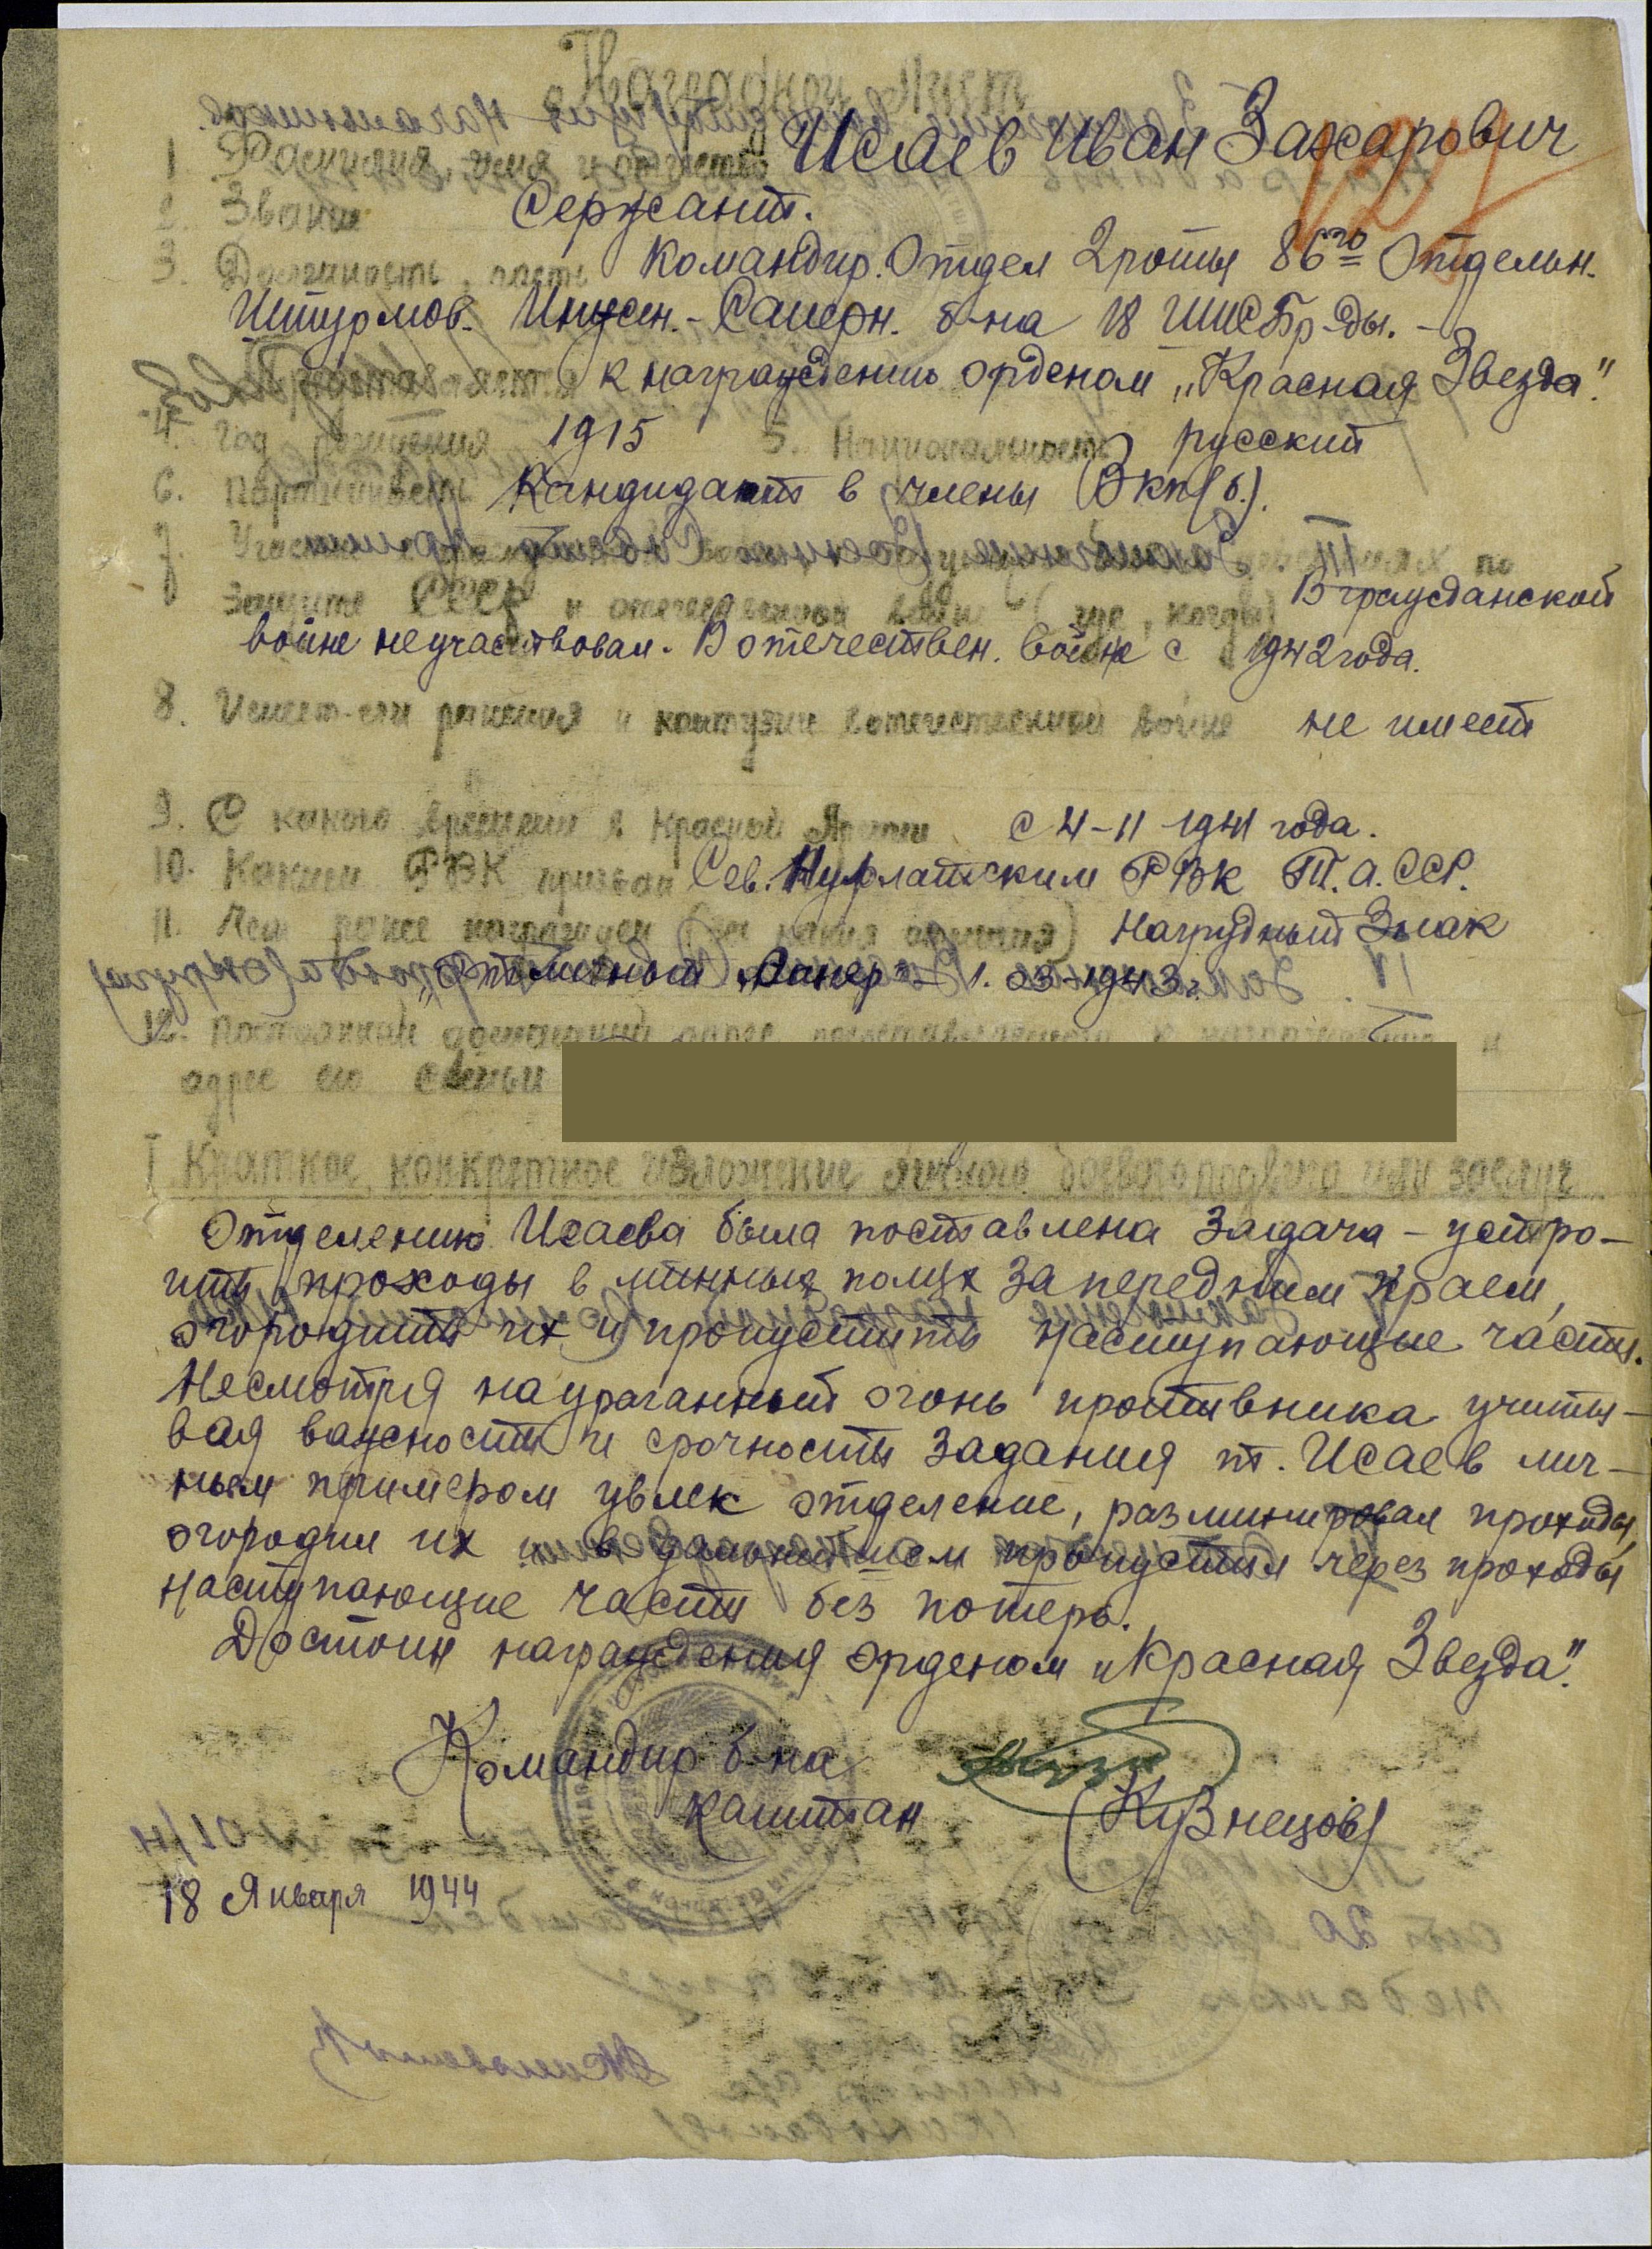 Наградной лист
1 Фамилия, имя и отчество Исаев Иван Захарович
2. Звание Сержант.
3. Должность, часть Командир. Отдел 2 роты 86го Отдельн.
Штурмов. Инжен.-Саперн. б-на 18 ШИСБр-ды. -
Представляется к награждению орденом „Красная Звезда".
4. Год рождения 1915 5. Национальность русский
6. Партийность Кандидат в члены ВКП(б).
7. Участие по
защите СССР и отечественной войне (где, когда) В гражданской
войне не участвовал. В отечествен. войне с 1942 года.
8. Имеет-ли ранения и контузии в отечественной войне не имеет
9. С какого времени в Красной Армии с 4-11 1941 года.
10. Каким РВК призван Сев. Нурлатским РВК Т.А.ССР.
11. Чем ранее награжден (за какие отличия) Нагрудный Знак
„Отличный Минер" - 1.03-1943 г.
12. Постоянный домашний адрес представляемого к награждению и
адрес его семьи
I Краткое, конкретное изложение личного боевого подвига или заслуг
Отделению Исаева была поставлена задача – устро-
ить проходы в минных полях за передним краем,
огородить их и пропустить наступающие части.
Несмотря на ураганный огонь противника учиты-
вая важность и срочность задания т. Исаев лич-
ным примером увлек отделение, разминировал проходы,
огородил их и в дальнейшем пропустил через проходы
наступающие части без потерь.
Достоин награждения орденом „Красная Звезда".
Командир б-на
капитан (Кузнецов)
18 Января 1944